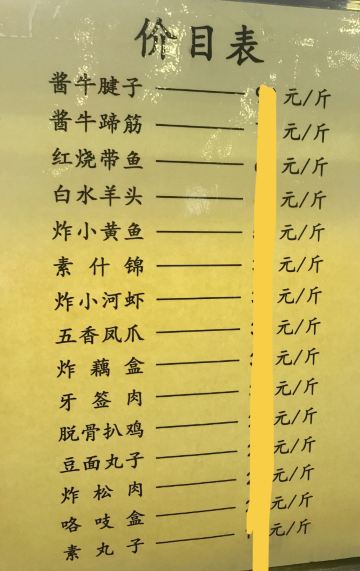 价目表
酱牛腱子 元/斤
酱牛蹄筋 元/斤
红烧带鱼 元/斤
白水羊头 元/斤
炸小黄鱼 元/斤
素什锦 元/斤
炸小河虾 元/斤
五香凤爪 元/斤
炸藕盒 元/斤
牙签肉 元/斤
脱骨扒鸡 元/斤
豆面丸子 元/斤
炸松肉 元/斤
咯吱盒 元/斤
素丸子 元/斤